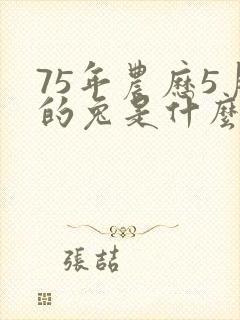 75年農歷5月
的兔是什麼
張喆